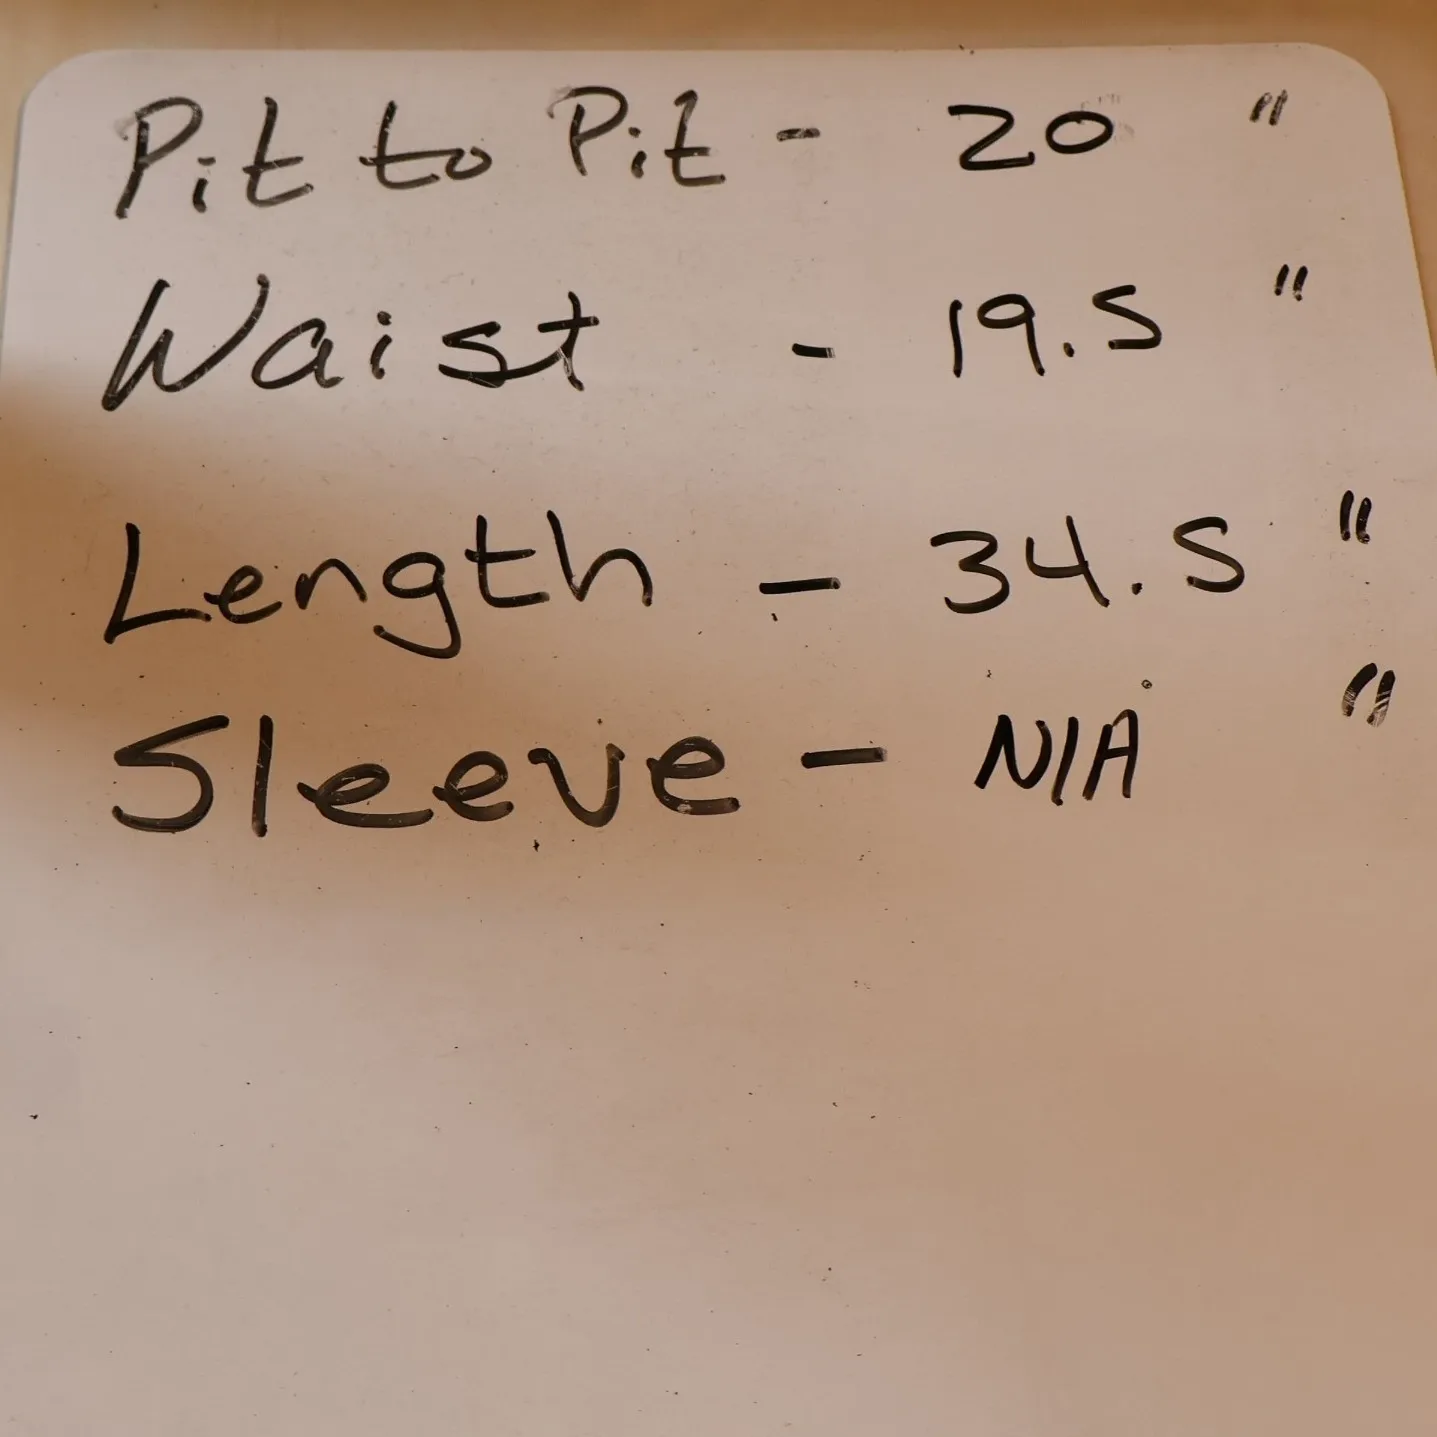 Pit to Pit - 20 "
Waist - 19.5 "
Length - 34.5 "
Sleeve - N/A "